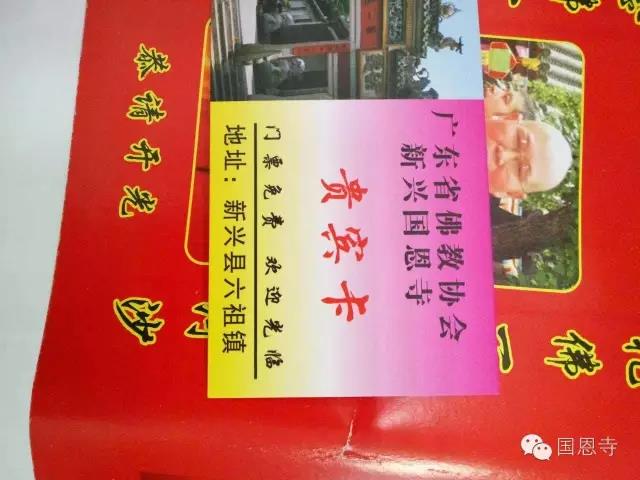 广东省佛教协会
新兴国恩寺
贵宾卡
门票免费 欢迎光临
地址：新兴县六祖镇
恭请开光
沙
佛
一佛
国恩寺